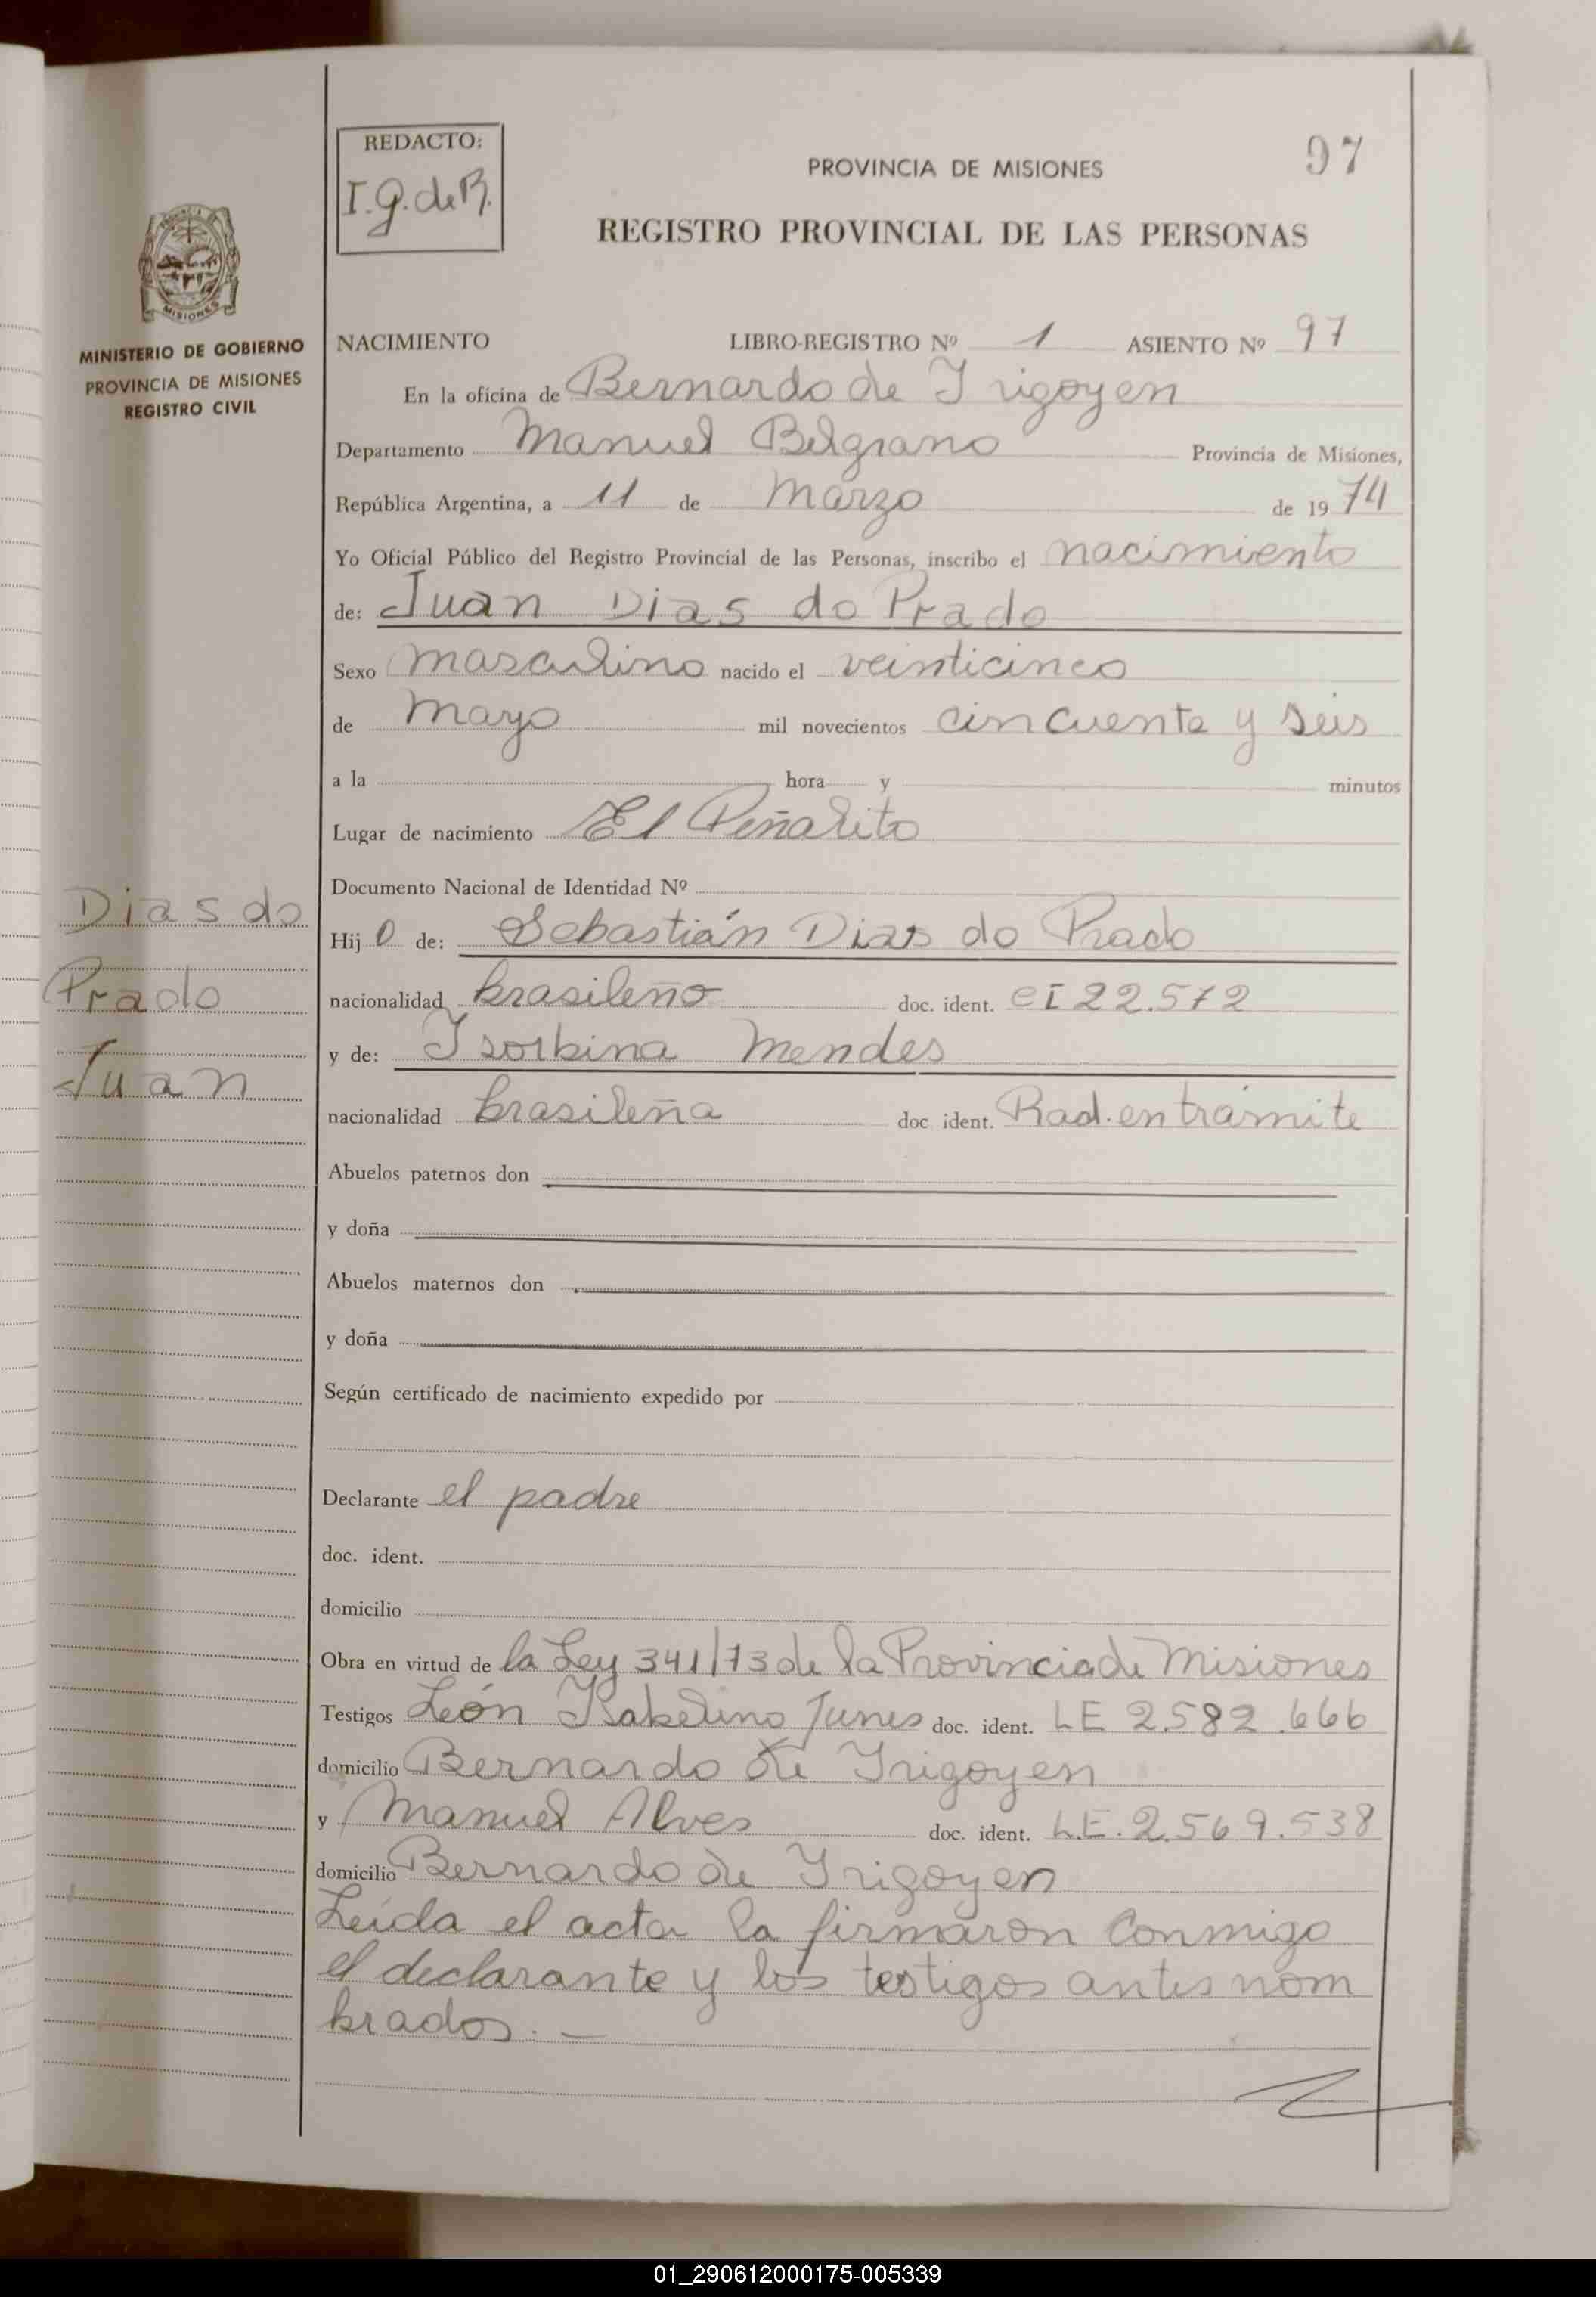 REDACTO:
I.g.deR.
97
PROVINCIA DE MISIONES
REGISTRO PROVINCIAL DE LAS PERSONAS
MISIONES
MINISTERIO DE GOBIERNO
PROVINCIA DE MISIONES
REGISTRO CIVIL
NACIMIENTO LIBRO-REGISTRO Nº 1 ASIENTO Nº 97
En la oficina de Bernardo de Irigoyen
Departamento Manuel Belgrano Provincia de Misiones,
República Argentina, a 11 de Marzo de 1974
Yo Oficial Público del Registro Provincial de las Personas, inscribo el nacimiento
de: Juan Dias do Prado
Sexo masculino nacido el veinticinco
de mayo mil novecientos cincuenta y seis
a la hora y minutos
Lugar de nacimiento El Piñalito
Documento Nacional de Identidad Nº
Dias do
Prado
Juan
Hijo de: Sebastián Dias do Prado
nacionalidad brasileño doc. ident. CI 22.572
y de: Isorbina Mendes
nacionalidad brasileña doc ident. Rad. en trámite
Abuelos paternos don
y doña
Abuelos maternos don
y doña
Según certificado de nacimiento expedido por
Declarante el padre
doc. ident.
domicilio
Obra en virtud de la Ley 341/73 de la Provincia de Misiones
Testigos León Isabelino doc. ident. LE 2.582.666
domicilio Bernardo de Irigoyen
y Manuel Alves doc. ident. L.E. 2.569.538
domicilio Bernardo de Irigoyen
Leída el acta la firmaron conmigo
el declarante y los testigos antes nom
brados. —
01_290612000175-005339